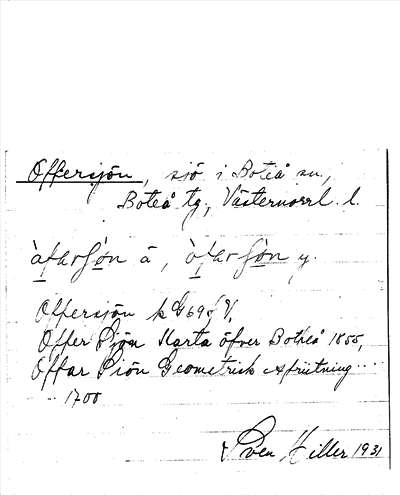 Offersjön, sjö i Boteå sn,
Boteå tg, Västernorrl. l.
àfarsòn ä, òfarsòn y.
Offersjön k G69 f V,
Offer Sjön Karta öfver Botheå 1855,
Offar Siön Geometrisk afritning
1700
Sven Hiller 1931